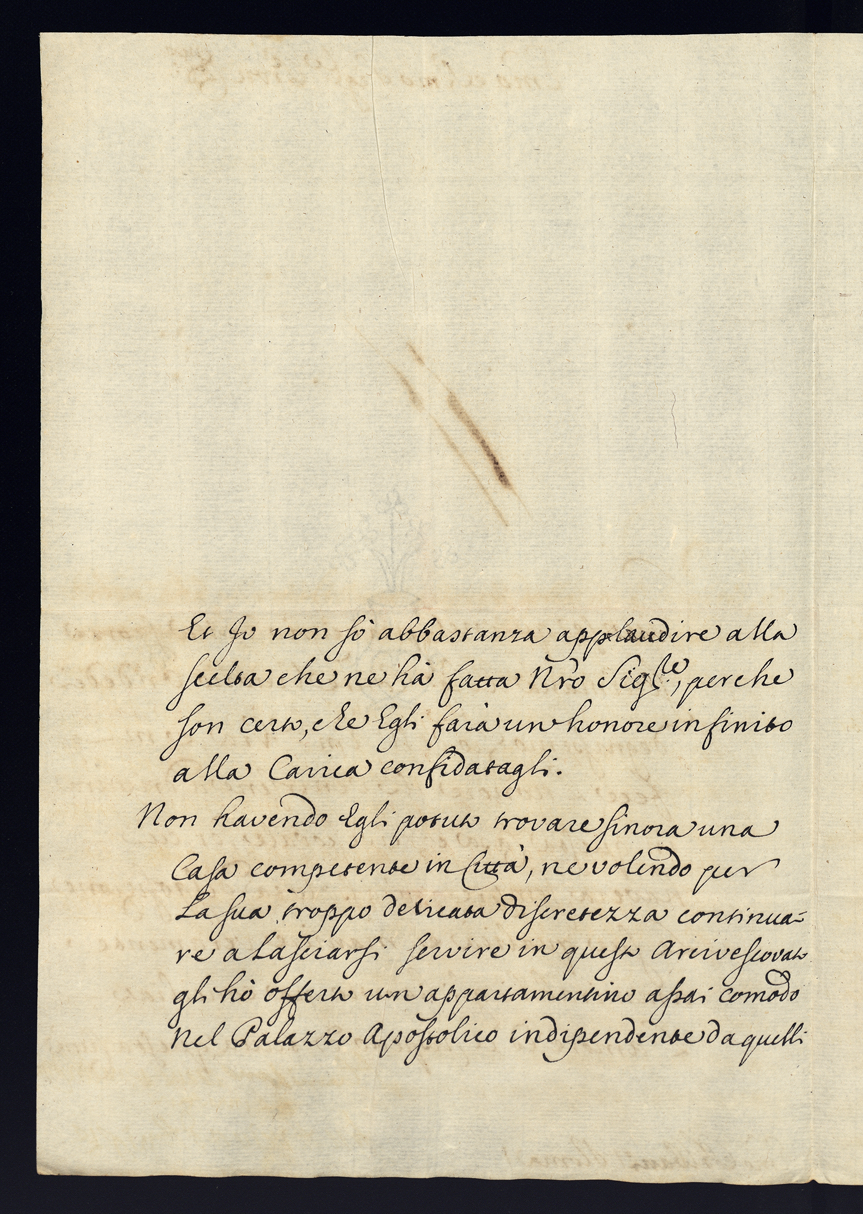 Et Io non sò abbastanza applaudire alla
scelta che ne hà fatta Nro Sigre, perche
son certo, che Egli farà un honore infinito
alla Carica confidatagli.
Non havendo Egli potuto trovare sinora una
Casa competente in Città, ne volendo per
la sua troppo delicata discretezza continua=
re a lasciarsi servire in questo Arcivescovato
gli hò offerto un appartamentino assai comodo
nel Palazzo Apostolico indipendente da quelli